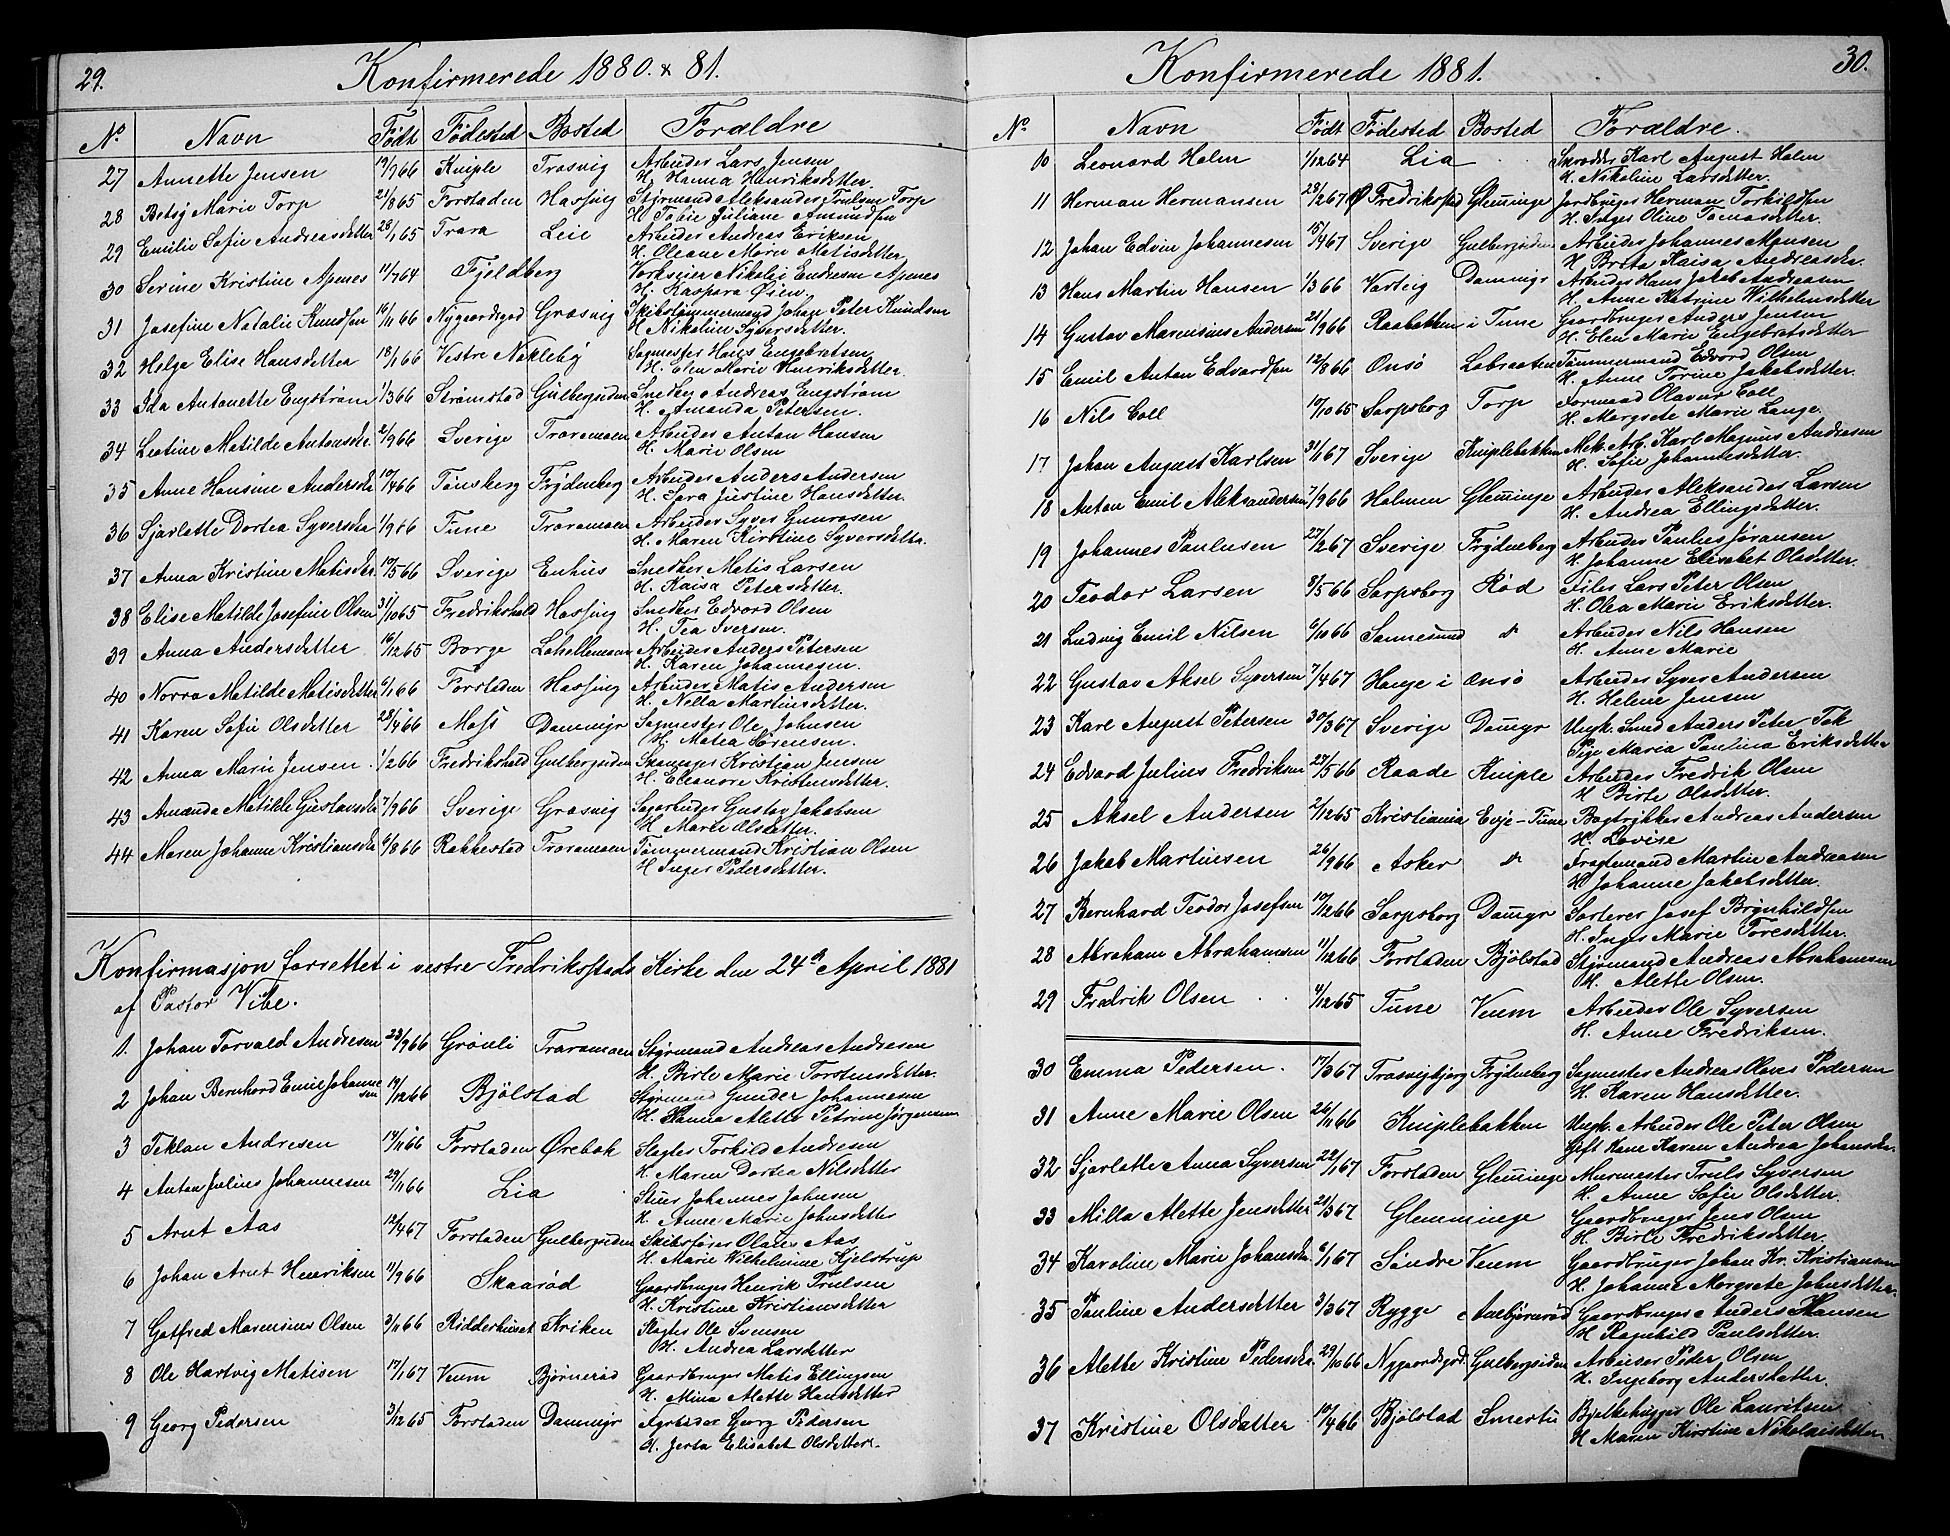 29.
Konfirmerede 1880. & 81.
No Navn Født Fødested Bosted Forældre
27 Annette Jensen 19/9 66 Kniple Trosvig Arbeider Lars Jensen
H. Hanna Henriksdatter.
28 Betsy Marie Torp 21/8 65 Forstaden Hassing Styrmand Aleksander Trulsen Torp
H. Tobie Juliane Amundsen
29 Emilie Sofie Andreasdatter 28/1 65 Trara Leie Arbeider Andreas Eriksen
H. Oleane Marie Matisdatter
30 Serine Kristine Apenes 11/7 64 Fjeldberg Verkseier Nikolei Endresen Apenes
H. Kaspara Øien.
31 Josefine Natalie Knudsen 16/11 66 Nygaardsgad Græsvig Skibstømmermand Johan Peter Knudsen
H. Nikoline Syversdatter.
32 Helga Elise Hansdatter 18/1 66 Vestre Nøkleby Sagmester Hans Engebretsen
H. Elen Marie Henriksdatter.
33 Ida Antonette Engstrøm 1/3 66 Strømstad Gulbergsiden Snedker Andreas Engstrøm
H. Amanda Petersen.
34 Leotine Matilde Antonsdtr. 2/9 66 Sverige Traramoen Arbeider Anton Hansen
H. Marie Olsen
35 Anne Hansine Andersdtr 10/4 66 Tønsberg Frydenberg Arbeider Anders Andersen
H. Sara Justine Hansdatter.
36 Sjarlotte Dortea Syversdtr 1/9 66 Tune Traramoen Arbeider Syver Gunrosen
H. Maren Kirstine Syversdatter.
37 Anna Kristine Matisdtr. 10/5 66 Sverige Enhus Snedker Matis Larsen
H. Kaisa Petersdatter.
38 Elise Matilde Josefine Olsen 31/10 65 Fredrikshald Hassing Snedker Edvard Olsen
H. Tea Iversen.
39 Anna Andersdatter 16/12 65 Borge Lahellemoen Arbeider Anders Petersen
H. Karen Johannesen.
40 Norra Matilde Matisdatter 6/1 66 Forstaden Hassing Arbeider Matis Andersen
H. Nella Martinsdatter.
41 Karen Sofie Olsdatter 28/4 66 Moss Dammyr Sagmester Ole Johnsen
H. Matea Sørensen.
42 Anna Marie Jensen. 1/2 66 Fredrikshald Gulbergsiden Skomager Kristian Jensen
H. Eleanore Kristensdatter.
43 Amanda Matilde Gustavsdtr 7/9 66 Sverige Græsvig Sagarbeider Gustav Jakobsen
H. Marie Olsdatter.
44 Maren Johanne Kristiansdtr 6/8 66 Rakkestad Traramoen Tømmermand Kristian Olsen
H. Inger Pedersdatter.
Konfirmasjon forrettet i vestre Fredriksstads Kirke den 24de April 1881
af Pastor Vibe.
1. Johan Torvald Andresen 23/9 66 Grønli Traramoen Styrmand Andreas Andresen
H. Birte Marie Torstensdatter.
2 Johan Bernhard Emil Johannesen 14/12 66 Bjølstad Styrmand Gunder Johannesen
H. Hanna Alette Petrine Jørgensen
3 Teklan Andresen 14/11 66 Forstaden Ørebæk Slagter Torkild Andresen
H. Maren Dortea Nilsdatter
4 Anton Julius Johannesen 29/11 66 Lia Stuer Johannes Johnsen
H. Anne Marie Johnsdatter
5 Arnt Aas 12/4 67 Forstaden Gulbergsiden Skibsfører Olaus Aas
H. Marie Wilhelmine Kjelstrup
6 Johan Arnt Henriksen 11/9 66 Skaarød Gaardbruger Henrik Trulsen
H. Kristine Kristiansdatter
7 Gotfred Marensius Olsen 3/11 66 Ridderhuset Kriken Slagter Ole Svensen
H. Andrea Larsdatter
8 Ole Hartvig Matisen 17/1 67 Veum Bjørnerød Gaardbruger Matis Ellingsen
H. Mina Alette Hansdatter
9 Georg Pedersen 3/12 65 Forstaden Dammyr Agrbeider Georg Pedersen
H. Jerta Elisabet Olsdatter.
30.
Konfirmerede 1881.
No Navn Født Fødested Bosted Forældre.
10 Leonard Holm 1/12 64 Lia Skrædder Karl August Holm
H. Nikoline Larsdatter.
11 Herman Hermansen 28/2 67 Ø Fredriksstad Glemminge Jordbruger Herman Torkildsen
H. Inger Oline Tomasdatter.
12 Johan Edvin Johannesen 15/4 67 Sverige Gulbergsiden Arbeider Johannes Monsen
H. Brita Kaisa Andreasdtr.
13 Hans Martin Hansen 1/3 66 Varteig Dammyr Arbeider Hans Jakob Andreasen
H. Anne Katrine Wilhelmsdatter
14 Gustav Marensius Andersen 21/9 66 Raabakken i Tune Gaardbruger Anders Jensen
H. Elen Marie Engebretsdatter
15 Emil Anton Edvardsen 12/8 66 Onsø Labraaten Tømmermand Edvard Olsen
H. Anne Torine Jakobsdatter.
16 Nils Coll 17/10 65 Sarpsborg Torp Formand Olavus Coll
H. Margrete Marie Lange.
17 Johan August Karlsen 31/1 67 Sverige Kniplebakken Mek. Arb. Karl Magnus Andresen
H. Sofie Johannesdatter.
18 Anton Emil Aleksandersen 7/9 66 Holmen Glemminge Arbeider Aleksander Larsen
H. Andrea Ellingsdatter.
19 Johannes Paulusen 27/2 67 Sverige Frydenberg Arbeider Paulus Jøransen
H. Johanne Elisabet Olsdatter.
20 Teodor Larsen 8/5 66 Sarpsborg Rød Filer Lars Peter Olsen
H. Olea Marie Eriksdatter.
21 Ludvig Emil Nilsen 6/10 66 Sannesund do Arbeider Nils Hansen
H. Anne Marie
22 Gustav Aksel Syversen 7/4 67 Hauge i Onsø Arbeider Syver Andersen
H. Helene Jensen
23 Karl August Petersen 30/3 67 Sverige Damyr Ungk. Smed Anders Peter Tek
Pige Maria Paulina Eriksdatter
24 Edvard Julius Fredriksen 27/5 66 Raade Kniple Arbeider Fredrik Olsen
H. Birte Olsdatter.
25 Aksel Andersen 2/12 65 Kristiania Evje-Tune Bogtrykker Andreas Andersen
H. Lovise
26 Jakob Martinsen 26/9 66 Asker do Fragtemand Martin Andreasen
H. Johanne Jakobsdatter.
27 Bernhard Teodor Josefsen 10/12 66 Sarpsborg Damyr Sorterer Josef Brynhildsen
H. Inger Marie Toresdatter.
28 Abraham Abrahamsen 11/12 66 Forstaden Bjølstad Styrmand Andreas Abrahamsen
H. Alette Olsen.
29 Fredrik Olsen 4/12 65 Tune Veum Arbeider Ole Syversen
H. Anne Fredriksen.
30 Emma Pedersen. 17/3 67 Trosvigbjerg Frydenberg Sagmester Andreas Olaves Pedersen
H. Karen Hansdatter.
31 Anne Marie Olsen 26/11 66 Kniplebakken Ungk. Arbeider Ole Peter Olsen
Gift Kone Karen Andrea Johansdtr.
32 Sjarlotte Anna Syversen 22/1 67 Forstaden Glemminge Murmester Truls Syversen
H. Anne Sofie Olsdatter.
33 Milla Alette Jensdatter 21/3 67 Glemminge Gaardbruger Jens Olsen
H. Birte Fredriksdatter.
34 Karoline Marie Johansdtr. 6/1 67 Søndre Veum Gaardbruger Johan Kr. Kristiansen
H. Johanne Margrete Johnsdatter.
35 Pauline Andersdatter 3/3 67 Rygge Auebjørnrød Gaardbruger Anders Hansen
H. Ragnhild Paulsdatter.
36 Alette Kristine Pedersdtr. 29/10 66 Nygaardsgad. Gulbergsiden Arbeider Peder Olsen
H. Ingeborg Andersdatter.
37 Kristine Olsdatter 10/4 66 Bjølstad Smertu Bjelkehugger Ole Lauritsen
H. Maren Kirstine Nikolaisdatter